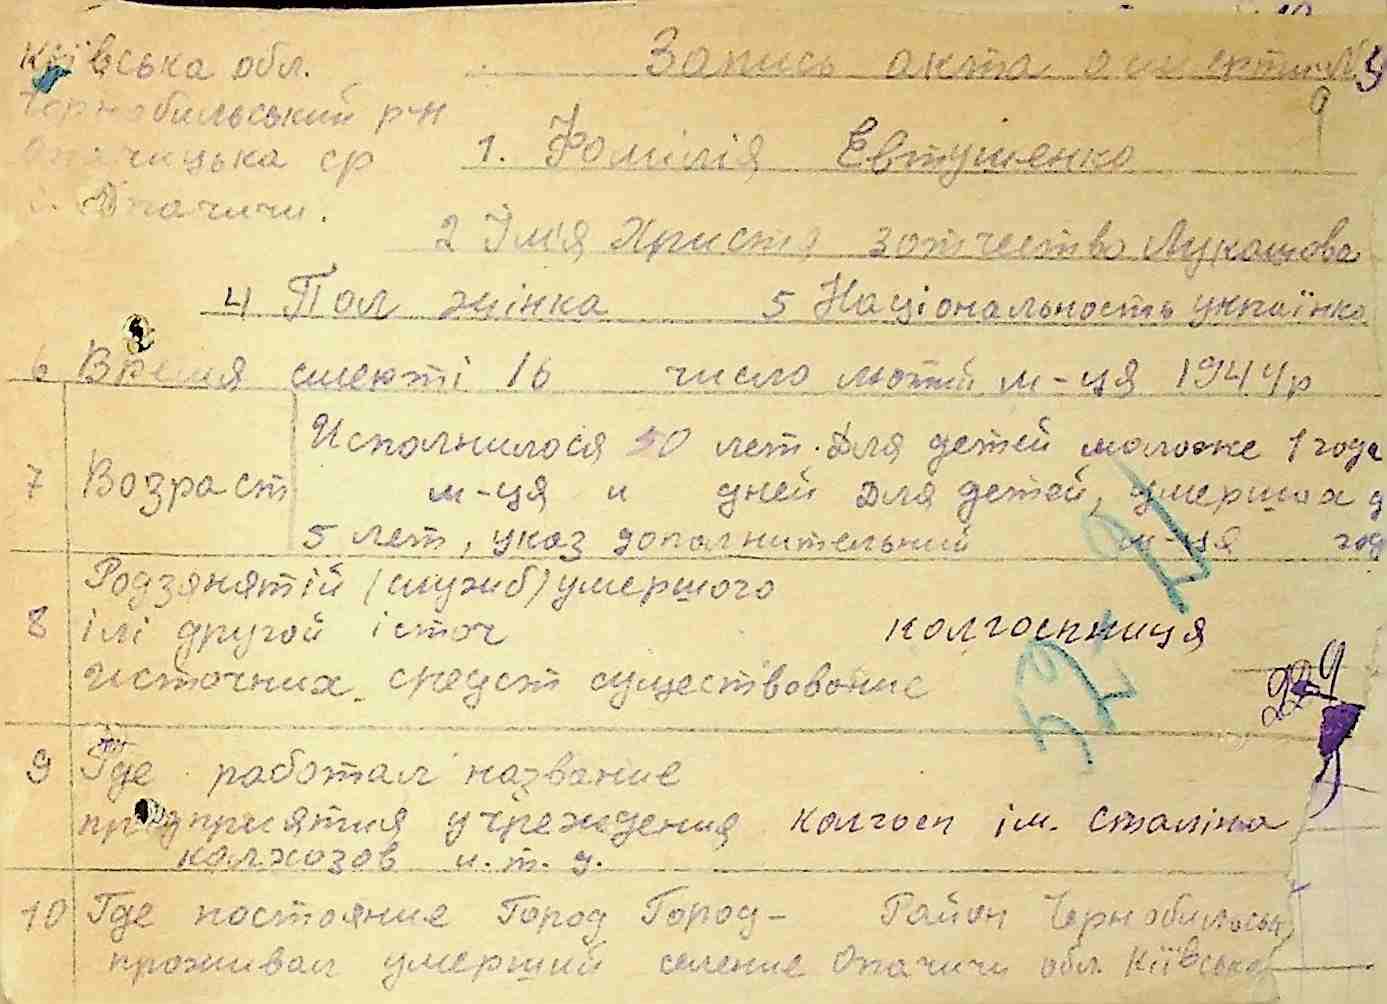 Київська обл.
Чорнобильський р-н
Опачицька ср
с. Опачичи.
Запись акта о смерти №
1. Фомілія Евтушенко
2 Імія Христя 3 отчество Лукашова
4 Пол жінка 5 Національность українка
6 Время смерті 16 число лютий м-ця 1944р
Исполнилося 50 лет. Для детей моложе 1 года
7 Возраст м-ця и дней Для детей, умерших д
5 лет, указ дополнительний м-ця год
Родзянятій (служб) умершого
8 ілі другой істоч колгоспниця
Источник средст существовоние
229
52-21
9 Где работал название
предприятия учреждения колгосп ім. сталіна
колхозов и. т. д.
10 Где постояние Город Город- Район Чорнобильськ
проживал умерший селение Опачичи обл. Київська